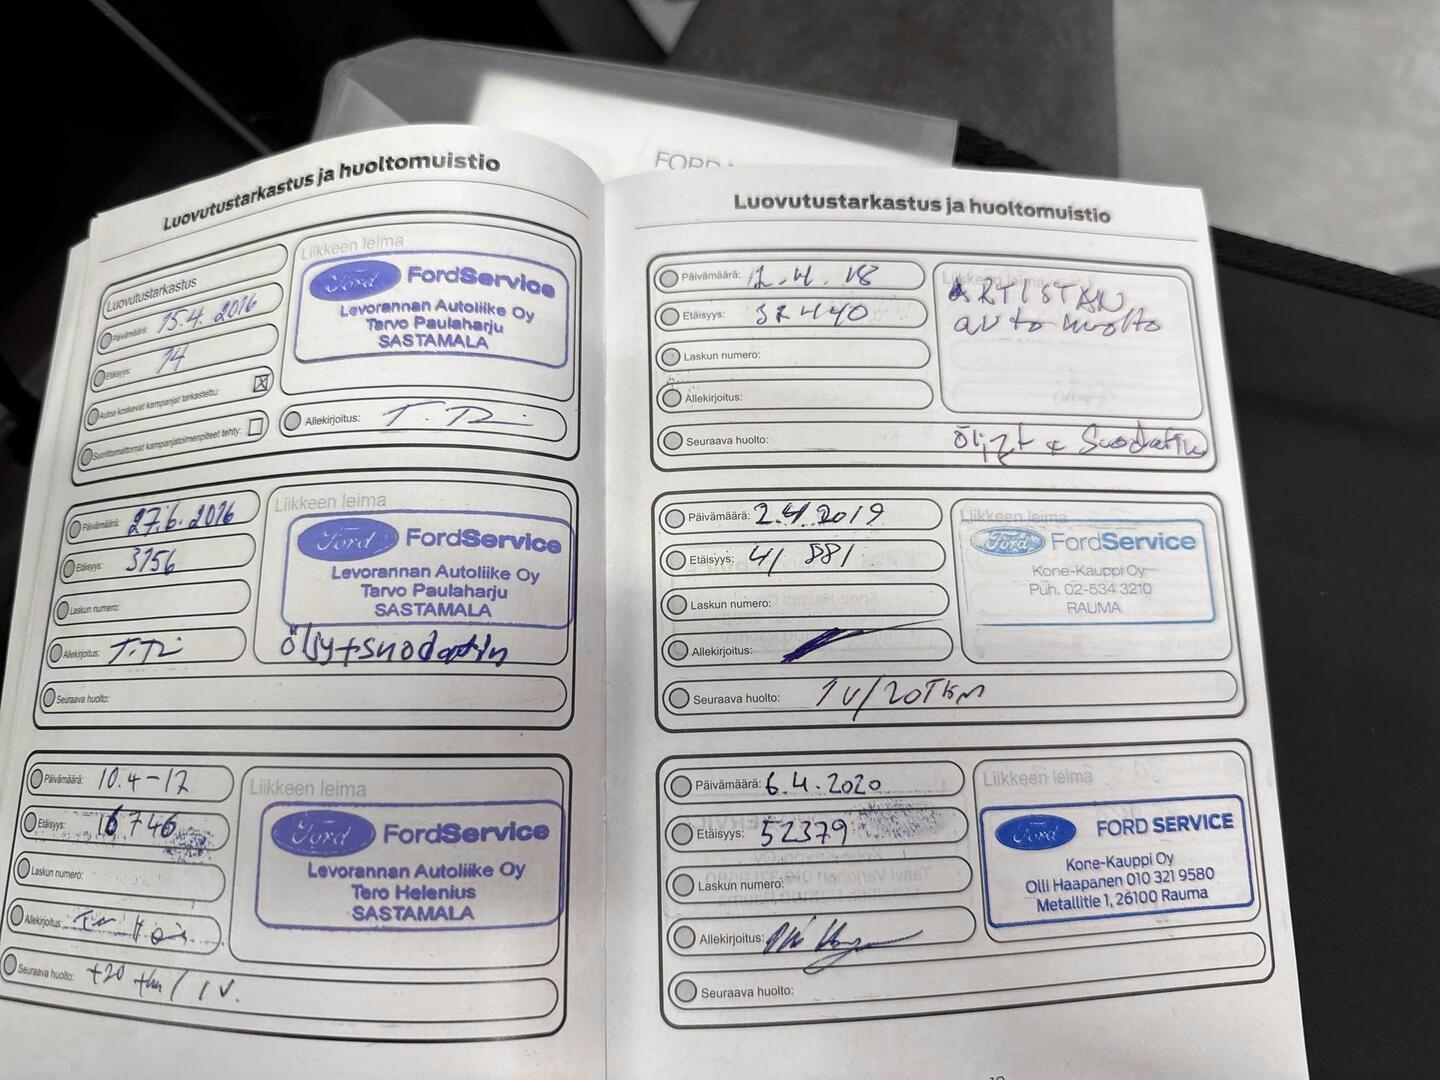 FORD
Luovutustarkastus ja huoltomuistio
Luovutustarkastus
Päivämäärä: 15.4. 2016
Etäisyys: 14
Autoa koskevat kampanjat tarkastettu:
Suorittamattomat kampanjatoimenpiteet tehty:
Liikkeen leima
Ford FordService
Levorannan Autoliike Oy
Tarvo Paulaharju
SASTAMALA
Allekirjoitus:
Päivämäärä: 27.6.2016
Etäisyys: 3156
Laskun numero:
Allekirjoitus:
Seuraava huolto:
Liikkeen leima
Ford FordService
Levorannan Autoliike Oy
Tarvo Paulaharju
SASTAMALA
Öljy+suodatin
Päivämäärä: 10.4-17
Etäisyys: 16746
Laskun numero:
Allekirjoitus:
Seuraava huolto: +20 tkm / 1 v.
Liikkeen leima
Ford FordService
Levorannan Autoliike Oy
Tero Helenius
SASTAMALA
Luovutustarkastus ja huoltomuistio
Päivämäärä: 12.4.18
Etäisyys: 32440
Laskun numero:
Allekirjoitus:
Seuraava huolto:
Liikkeen leima
ARTISTAN
autohuolto
Suodatin
Päivämäärä: 2.4.2019
Etäisyys: 41 881
Laskun numero:
Allekirjoitus:
Seuraava huolto: 1v/20Tkm
Liikkeen leima
Ford FordService
Kone-Kauppi Oy
Puh. 02-534 3210
RAUMA
Päivämäärä: 6.4.2020
Etäisyys: 52379
Laskun numero:
Allekirjoitus:
Seuraava huolto:
Liikkeen leima
Ford FORD SERVICE
Kone-Kauppi Oy
Olli Haapanen 010 321 9580
Metallitie 1, 26100 Rauma